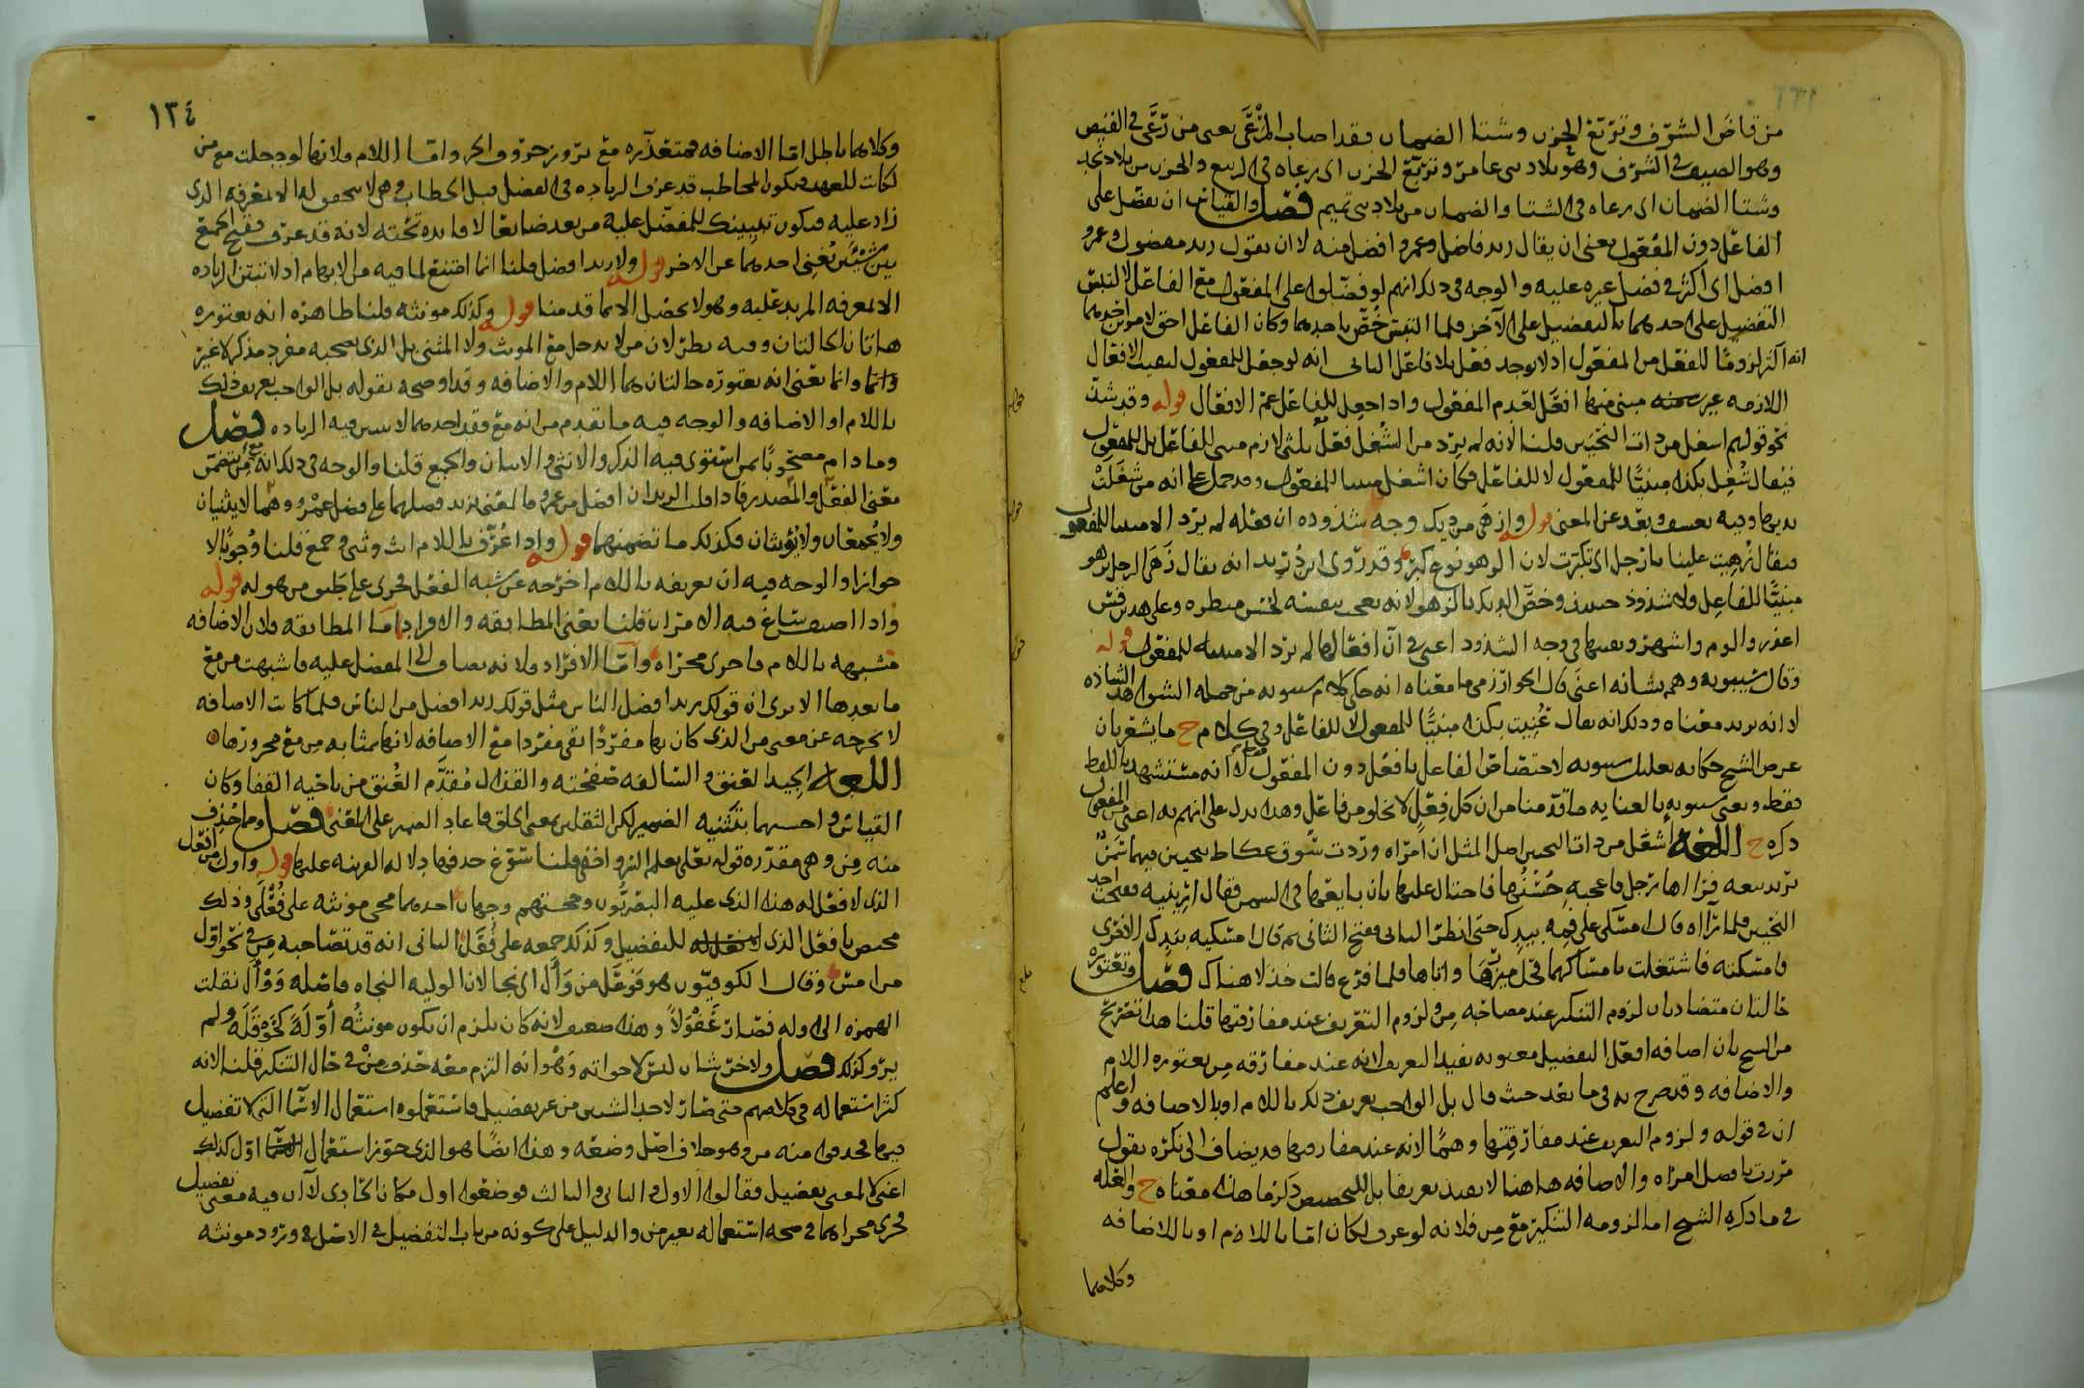 من قاض الشرف وتربع الحزن وشتا الصمان فقد اصاب المرعى يعنى من رعى في القيص
وهو الصيف في الشرف وهو بلاد بنى عامر وتربع الحزن اى رعاه في الربيع والحزن من بلاد
وشتا الصمان اى رعاه في الشتا والصمان من بلاد بنى تميم فصل والقياس ان يفضل على
الفاعل دون المفعول يعنى ان يقال زيد فاضل وعمرو افضل منه لا ان يقول زيد مفضول وعمرو
افضل اى اكثر في فضل غيره عليه والوجه في ذلك انهم لو فضلوا على المفعول مع الفاعل لالتبس
التفضيل على احدهما بالتفضيل على الآخر فلما التبس خص باحدهما وكان الفاعل احق لامرين احدهما
انه اكثر لزوما للفعل من المفعول اذ لا يوجد فعل بلا فاعل الثانى انه لو جعل للمفعول لبقيت الافعال
اللازمة غير مبنى منها افعل لعدم المفعول واذا جعل للفاعل عم الافعال قوله وقد شذ
نحو قولهم اشغل من ذات النحيين قلنا لانه لم يرد من الشغل فعل ثلثى لازم مبنى للفاعل بل للمفعول
فيقال شغل بكذا مبنيا للمفعول لا للفاعل فكان اشغل مبنيا للمفعول وقد حمل على انه من شغلت
وفيه تعسف وبعد عن المعنى قوله وازهى من ديك وجه شذوذه ان فعله لم يرد الا مبنيا للمفعول
فيقال زهيت علينا يا رجل اى تكبرت لان الزهو نوع كبر وقد روى ابن دريد انه يقال زهى الرجل يزهو
مبنيا للفاعل ولا شذوذ حينئذ وخص الديك بالزهو لانه يعجب بنفسه لحسن منظره وعلى هذا فقس
اعذر والوم واشهر وبقيتها في وجه الشذوذ اعنى في ان افعالها لم ترد الا مبنية للمفعول قوله
وقال سيبويه وهم بشانه اعنى قال الخوارزمى ما معناه انه حكى كلام سيبويه من جملة الشواهد الشاذه
لا انه يريد معناه وذلك انه يقال عنيت بكذا مبنيا للمفعول لا للفاعل وفي كلام ح ما يشعر بان
غرض الشيخ حكاية تعليل سيبويه لاختصاص الفاعل بافعل دون المفعول لا انه مستشهد باللفظ
فقط ويعنى سيبويه بالعناية ما قدمنا من ان كل فعل لا يخلو من فاعل وهذا يدل على انهم به اعنى من المفعول
ذكره ح اللغه اشغل من ذات النحيين اصل المثل ان امراه وردت سوق عكاظ بنحيين فيهما سمن
تريد بيعه فراها رجل فاعجبه حسنها فاحتال عليها بان بايعها في السمن فقال ارينيه ففتحت احد
النحيين فلما رآه قال امسكى على فمه بيدك حتى انظر الثانى ففتح الثانى ثم قال امسكيه بيدك الاخرى
فامسكته فاشتغلت بامساكهما واتاها فلما فرغ قالت خذ لا هناك فصل وتعتوره
حالتان متضادتان لزوم التنكير عند مصاحبة من ولزوم التعريف عند مفارقتها قلنا هذا تصريح
من الشيخ بان اضافه افعل التفضيل معنويه تفيد التعريف لانه عند مفارقه من يعتوره اللام
والاضافه وقد صرح به في ما بعد حيث قال بل الواجب تعريف ذلك باللام او بالاضافه واعلم
ان في قوله ولزوم التعريف عند مفارقتها وهما لانه عند مفارقتها قد يضاف الى نكره يقول
مررت بافضل امراه والاضافه هاهنا لا تفيد تعريفا بل التخصيص ذكر ما هذا معناه ح والعله
في ما ذكره الشيخ اما لزومه التنكير مع من فلانه لو عرف لكان اما باللام او بالاضافه
وكلاهما
١٣٤
وكلاهما باطل اما الاضافه فمتعذره مع بروز حروف الجر واما اللام ولانها لو جعلت مع من
لكانت للعهد فيكون المخاطب قد عرف الزياده في الفضل قبل الخطاب في هو لا يحصل له الا معرفه الذى
زاد عليه فيكون تبيينك للمفضل عليه من بعد ضائعا لا فايده تحته لانه قد عرف وقبح الجمع
بين شيئين يغنى احدهما عن الاخر قوله ولا زيد افضل قلنا انما امتنع لما فيه من الابهام اذ لا تبين الزياده
الا لمعرفه المزيد عليه وهو لا يحصل الا بما قدمنا قوله وكذلك مونثه قلنا ظاهره انه يعتوره
هاتان الحالتان وفيه نظر لان من لا يدخل مع المونث ولا المثنى بل الذى يصحبه مفرد مذكر لا غير
وانما يعنى انه يعتوره حالتان هما اللام والاضافه وقد اوضحه بقوله بل الواجب تعريف ذلك
باللام او الاضافه والوجه فيه ما تقدم من انه مع فقد احدهما لا يبين فيه الزياده فصل
وما دام مصحوبا بمن استوى فيه الذكر والانثى والاثنان والجمع قلنا والوجه في ذلك انه مع من يتضمن
معنى الفعل والمصدر فاذا قلت الزيدان افضل من عمرو فالمعنى يزيد فضلهما على فضل عمرو وهما لا يثنيان
ولا يجمعان ولا يؤنثان فكذلك ما تضمنهما قوله واذا عرف باللام انث وثنى وجمع قلنا وجوبا لا
جوازا والوجه فيه ان تعريفه باللام اخرجه عن شبه الفعل فجرى على طبق من هو له قوله
واذا اضيف ساغ فيه الامران قلنا يعنى المطابقه والافراد اما المطابقه فلان الاضافه
مشبهه باللام فاجرى مجراه واما الافراد فلانه يضاف الى المفضل عليه فاشبهت من مع
ما بعدها الا ترى ان قولك زيد افضل الناس مثل قولك زيد افضل من الناس فلما كانت الاضافه
لا تخرجه عن معنى من الذى كان بها مفردا بقى مفردا مع الاضافه لانها بمثابه من مع مجرورها
اللغه الجيد العنق والسالفه صفحته والقذال مقدم العنق من ناحيه القفا وكان
القياس واحسنهما بتثنيه الضمير لكن الثقلين بمعنى الخلق فاعاد الضمير على المعنى فصل ومما حذف
منه من وهى مقدره قوله تعلى يعلم السر واخفى قلنا سوغ حذفها دلاله القرينه عليها قوله واول من افعل
الذى لا فعل له هذا الذى عليه البصريون وحجتهم وجهان احدهما مجى مونثه على فعلى وذلك
مختص بافعل الذى للتفضيل وكذلك جمعه على فعل الثانى انه قد تصاحبه من في نحو اول
من امس وقال الكوفيون هو فوعل من وأل اى نجا لان الوليه النجاه فاصله ووأل نقلت
الهمزه الى اوله فصار عفولا وهذا ضعيف لانه كان يلزم ان يكون مونثه أولة كحوقلة ولم
يرد كذلك فصل ولاخر شان ليس لاخواته وهو انه التزم معه حذف من في حال التنكير قلنا لانه
كثر استعماله في كلامهم حتى صار لاحد الشيئين من غير تفضيل فاستعملوه استعمال الاسما التى لا تفضيل
فيها فحذفوا منه من وهو خلاف اصل وضعه وهذا ايضا هو الذى جوز استعمال اول كذلك
اعنى لا لمعنى تفضيل فقالوا الاول والثانى والثالث فوضعوا اول مكان الحادى لا ان فيه معنى تفضيل
فجرى مجراهما في صحه استعماله بغير من والدليل على كونه من باب التفضيل في الاصل ورود مونثه